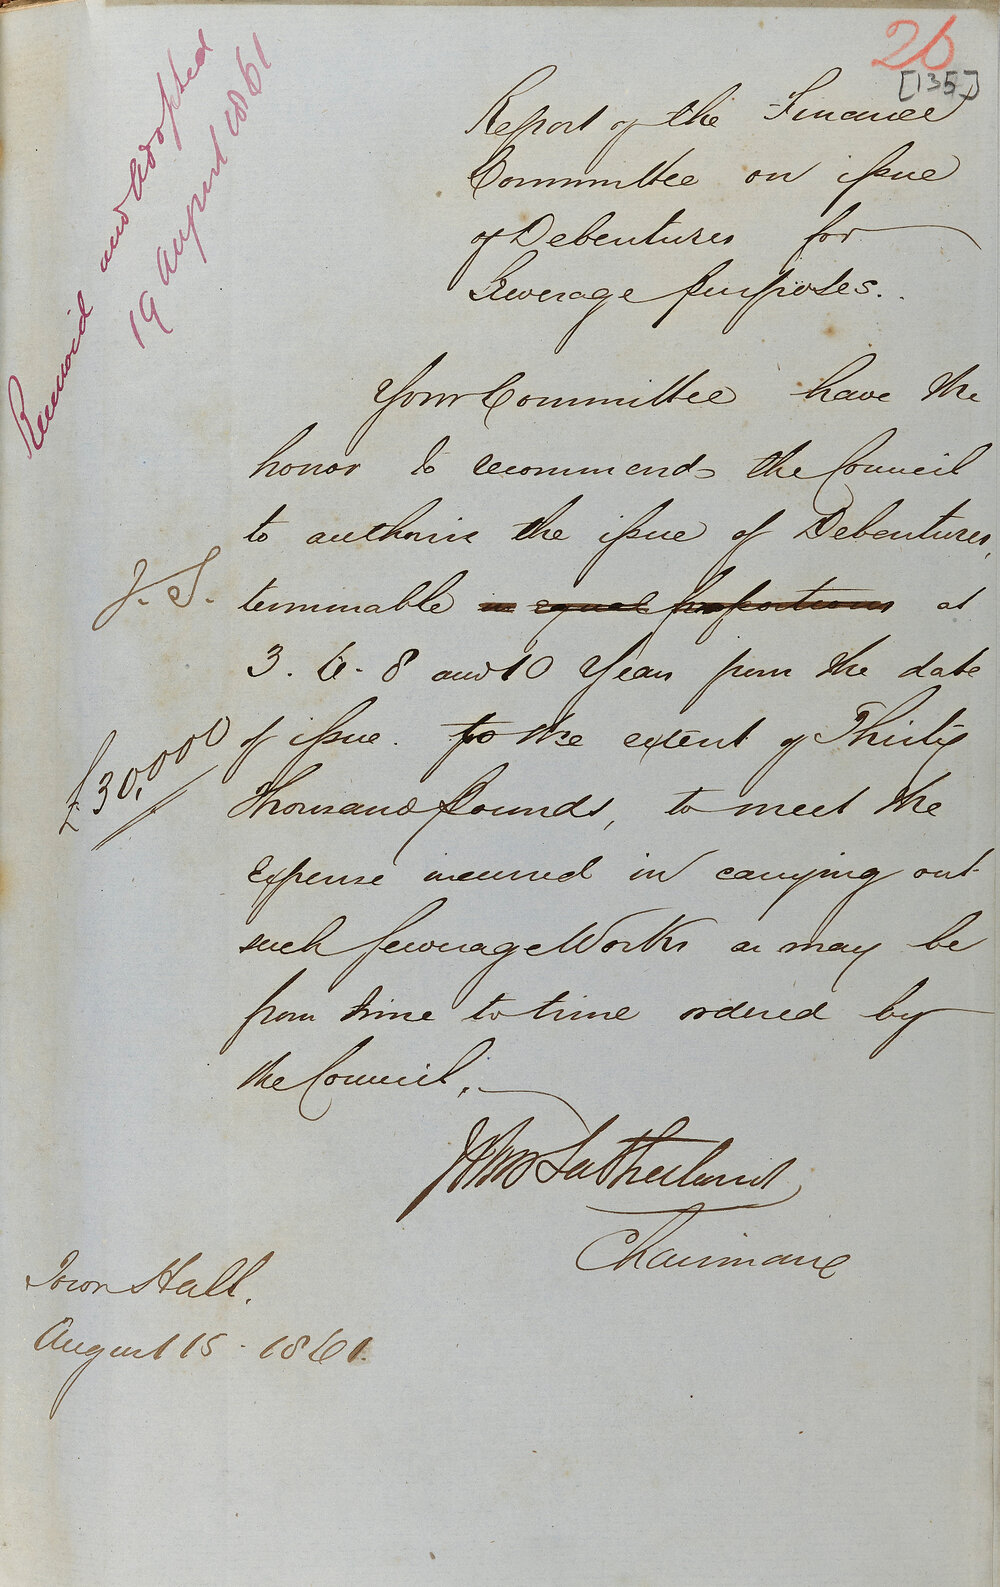 26
[135]
Received and Adopted
19 August 1861
Report of the Finance
Committee on issue
of Debentures for
Sewerage purposes.
Your Committee have the
honor to recommend the Council
to authorise the issue of Debentures,
J. S.
terminable in equal proportions at
3. 6. 8 and 10 Years from the date
£30,000
of issue. to the extent of Thirty
Thousand Pounds, to meet the
Expense incurred in carrying out
such Sewerage Works as may be
from time to time ordered by
the Council.
Sutherland
Chairman
Town Hall.
August 15 - 1861.